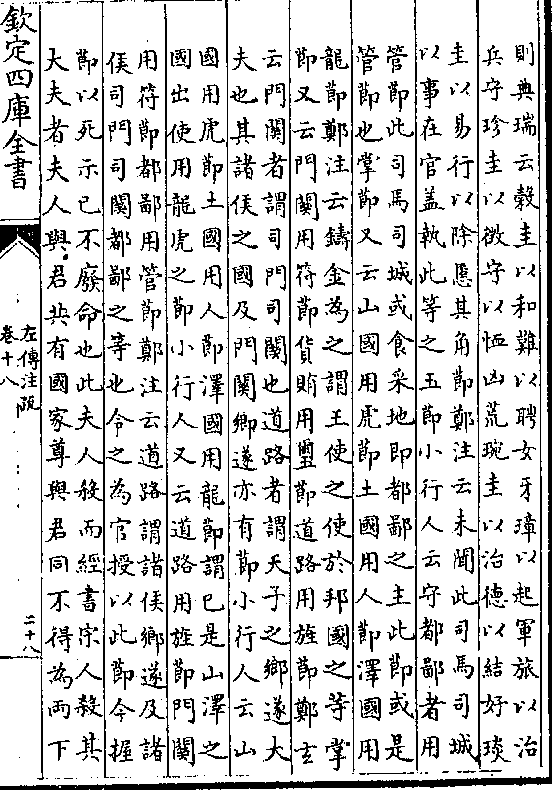 則典瑞云穀圭以和難以聘女牙璋以起軍旅以治
兵守珍圭以徵守以恤凶荒琬圭以治德以結好琰
圭以易行以除慝其角節鄭注云未聞此司馬司城
以事在官盖執此等之玉節小行人云守都鄙者用
管節此司馬司城或食采地即都鄙之主此節或是
管節也掌節又云山國用虎節土國用人節澤國用
龍節鄭注云鑄金為之謂王使之使於邦國之等掌
節又云門關用符節貨賄用璽節道路用旌節鄭玄
云門關者謂司門司關也道路者謂天子之鄉遂大
夫也其諸侯之國及門關鄉遂亦有節小行人云山
國用虎節土國用人節澤國用龍節謂已是山澤之
國出使用龍虎之節小行人又云道路用旌節門關
用符節都鄙用管節鄭注云道路謂諸侯鄉遂及諸
侯司門司關都鄙之等也令之為官授以此節今握
節以死示已不廢命也此夫人殺而經書宋人殺其
大夫者夫人與君共有國家尊與君同不得為兩下
欽定四庫全書
左傳注疏
卷十八
二十八